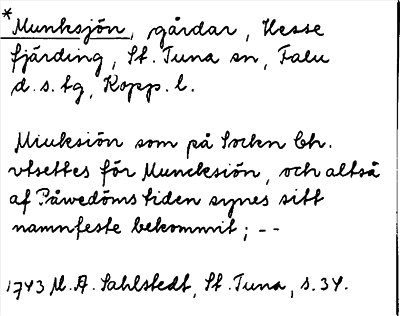 *Munksjön, gårdar, Hesse
fjärding, St. Tuna sn, Falu
d.s. tg, Kopp. l.
Miuksiön som på Sockn Ch.
vtsettes för Muncksiön, och altså
af Påwedöms tiden synes sitt
namnfeste bekommit; --
1743 M. A. Sahlstedt, St. Tuna, s. 34.